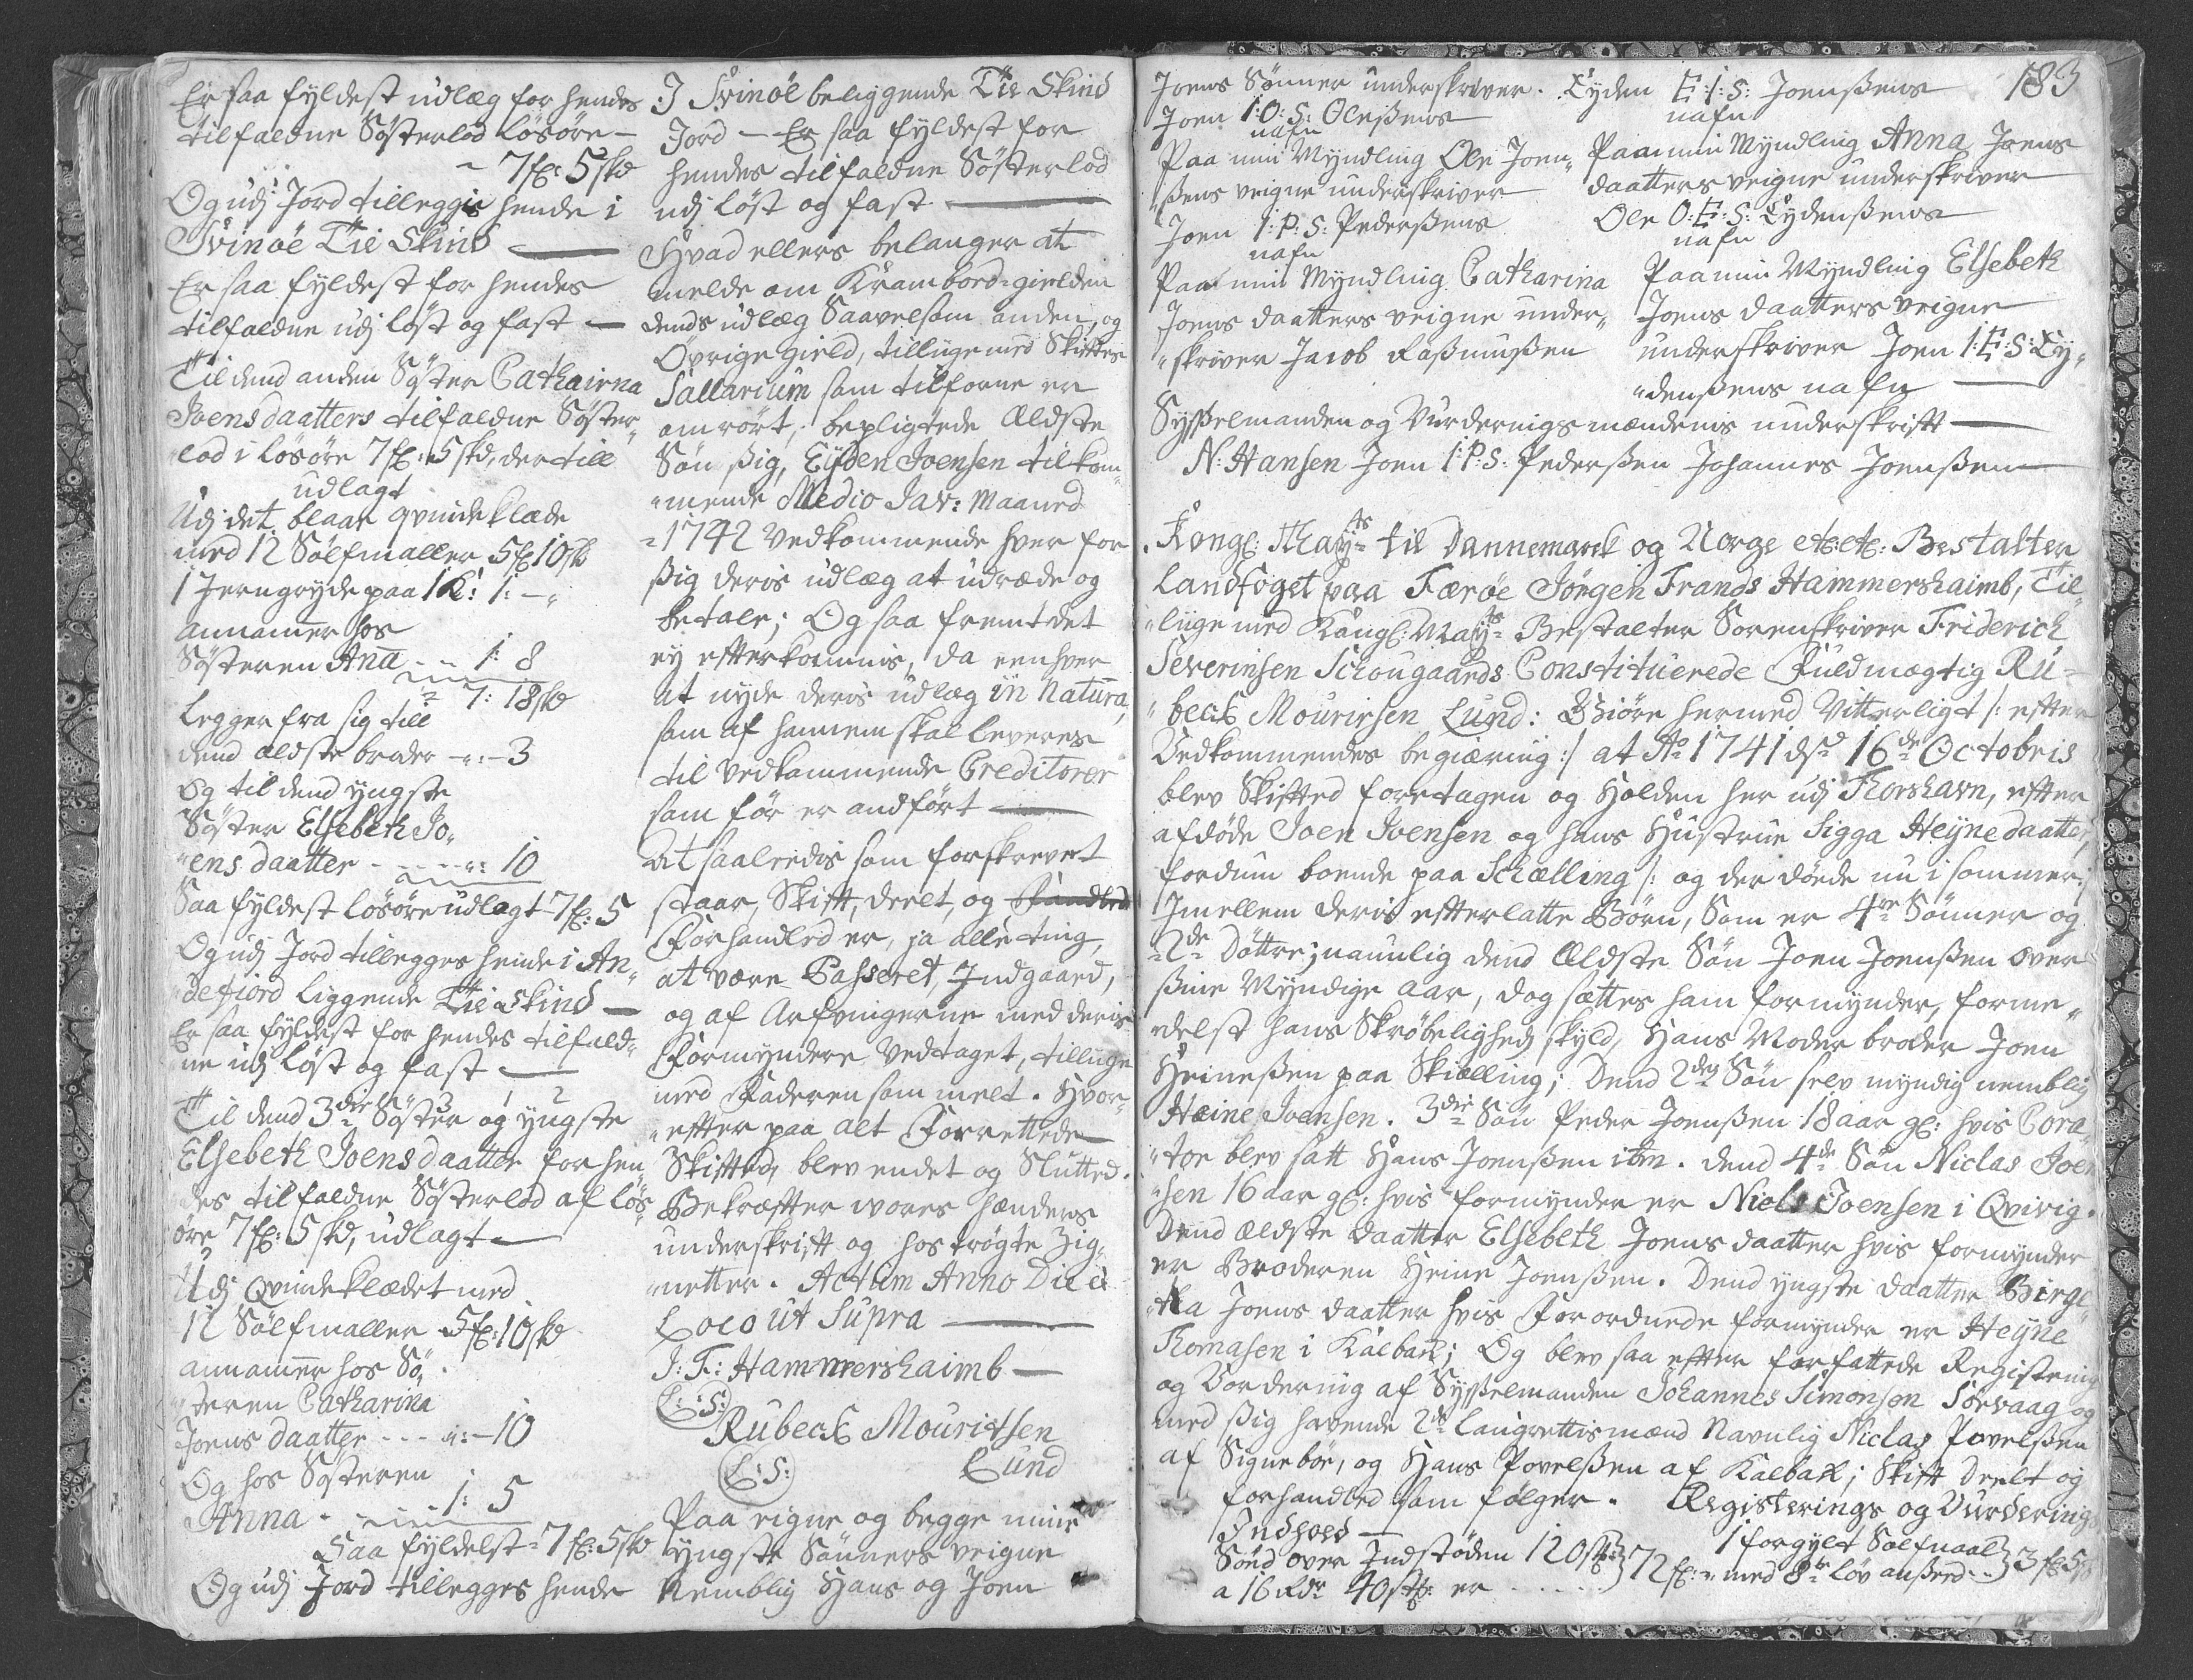 Er saa fyldest udlæg for hendes
tilfaldne Søsterlod løsøre —
~ 7 fl: 5 skd
Og udj Jord tillegges hende i
Svinøe Tie Skind —
Er saa fyldest for hendes
tilfaldne udj løst og fast —
Til dend anden Søster Cathairna
Joensdaatters tilfaldne Søster„
lod i løsøre 7 fl: 5 skd, der till
udlagt
Udj det blaae qvindeklæde
med 12 Sølfmaller 5 fl 10 skd
1 Jerngryde paa 1 K: 1: —„
annamer hos
Søsteren Aña - - 1: 8
~ 7: 18 skd
Legger fra sig till
dend eldste broder -„:- 3
Og til dend yngste
Søster Elsebeth Jo„
„ens daatter - - - -„: 10
Saa fyldest løsøre udlagt 7 fl: 5
Og udj Jord tillegges hende i An„
„defiord liggende Tie Skind —
Er saa fyldest for hendes tilfald„
ne udj løst og fast —
Til dend 3die Søster og yngste
Elsebeth Joensdaatter for hen
des tilfaldne Søsterlod af løs„
øre 7 fl: 5 skd, udlagt —
Udj Qvindeklædet med
12 Sølfmaller 5 fl: 10 skd
annamer hos Sø„
„steren Catharina
Joens daatter - - - „: - 10
Og hos Søsteren
Anna - - - - 1: 5
Saa fyldelst - 7 fl: 5 skd
Og udj Jord tillegges hende
J Svinøe beliggende Tie Skind
Jord — Er saa fyldest for
hendes tilfaldne Søsterlod
udj løst og fast —
Hvad ellers belanger at
melde om Krambord-gielden
dends udlæg Saavelsom anden, og
Øvrige gield, tillige med Skiftes
Sallarium som tilforne er
omrørt, bepligtede Eldste
Søn ßig, Eyden Joensen tilkom„
„mende Medio Jav: Maaned
- 1742 Vedkommende hver for
ßig deris udlæg at udræde og
betale; Og saa fremt det
ey efterkommis, da eenhver
at nyde deris udlæg in Natura,
som af hannem skal leveres
til Vedkommende Creditorer
som før er andført —
At saaledis som forskrevet
staar, Skift, deelt, og
Forhandled er, ja alle ting,
at være Passeret, Indgaaed,
og af Arfvingerne med deris
Formyndere Vedtaget, tillige
med Faderen som melt. Hvor„
„efter paa alt Forrettede
Skifted, blev endet og Slutted.
Bekræfter vores hænders
underskrift og hostrøgte Zig„
„netter. Actum Anno Die et
Loco ut Supra —
J: F: Hammershaimb —
L: S:
Rubeck Mouritsen
L: S: Lund
Paa eigne og begge mine
yngste Sønners veigne
Nemblig Hans og Joen
183
Joens Sønner underskriver. Eyden E: I: S: Joenßens
nafn
Joen I: O: S: Oleßens
nafn
Paa min Myndling Ole Joen„
„ßens veigne underskriver
Joen I: P: S: Pederßens
nafn
Paa min Myndling Catharina
Joens daatters veigne under„
„skriver Jacob Raßmußen
Paa min Myndling Anna Joens
daatters veigne underskriver
Ole O: E: S: Eydenßens
nafn
Paa min Myndling Elsebeth
Joens daatters veigne
underskriver Joen I: E: S: Ey„
„denßens nafn —
Sysselmanden og Vurdernigs mændenis underskrift —
N: Hansen Joen I: P: S: Pederßen Johannes Joenßen
Kongl: Mayts til Dannemarck og Norge etc: etc: Bestalter
Landfoget paa Færøe Jørgen Frands Hammershaimb, Til„
„liige med Kongl: Mayts Bestalter Sorenskriver Friderich
Severinsen Schougaards Constituerede Fuldmægtig Ru„
„beck Mouritsen Lund: Giøre hermed Vitterligt /: efter
Vedkommendes begiæring :/ at Ao 1741 dsd 16de Octobris
blev Skifted foretagen og Holden her udj Thorshavn, efter
afdøde Joen Joensen og hans Hustrue Sigga Heyne daatter,
fordum boende paa Schælling /: og der døede nu i sommer:/
Imellem deris efterlatte Børn, Som er 4re Sønner og
2de Døttre; naunlig dend Eldste Søn Joen Joenßen over
ßine Myndige aar, dog sættes ham formynder, forme„
„delst hans Skrøbelighed skyld, Hans Moder broder Joen
Heineßen paa Skiælling; Dend 2den Søn selv myndig nemblig
Heine Joensen. 3die Søn Peder Joenßen 18 aar gl: hvis Cora„
„tor blev satt Hans Joenßen ibm. dend 4de Søn Niclas Joen
„sen 16 aar gl: hvis formynder er Niels Joensen i Qvivig.
Dend ældste daatter Elsebeth Joens daatter hvis formynder
er Broderen Heine Joenßen. Dend yngste daatter Birge„
„tha Joens daatter hvis Forordnede formynder er Heyne
Thomasen i Kalbak; Og blev saa efter forfattede Registering
og Vordering af Sysselmanden Johannes Simonsen Sørvaag og
med ßig havende 2de laugrettismænd Navnlig Niclas Povelßen
af Signebøe, og Hans Povelßen af Kalbak; Skift deelt og
forhandled som følger. Registerings og Vurderings
Indhold —
Sønd over Indstøden 120 st } 72 fl: „
a 16 Rdr 40 st: er . . . . .
1 forgylt Sølfnaal } 3 fl: 5 s
med 8te løv anßred